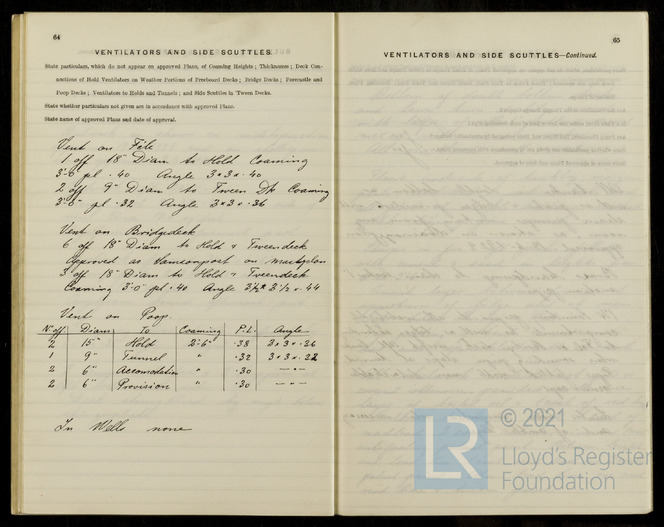 64
VENTILATORS AND SIDE SCUTTLES.
State particulars, which do not appear on approved Plans, of Coaming Heights; Thicknesses; Deck Con-
nections of Hold Ventilators on Weather Portions of Freeboard Decks; Bridge Decks; Forecastle and
Poop Decks; Ventilators to Holds and Tunnels; and Side Scuttles in 'Tween Decks.
State whether particulars not given are in accordance with approved Plans.
State name of approved Plans and date of approval.
Vent on F'cle
1 off 18" Diam to Hold Coaming
3'-6" pl .40 Angle 3x3x.40
2 off 9" Diam to Tween Dk Coaming
3'-6" pl .32 Angle 3x3x.36
Vent on Bridgedeck
6 off 18" Diam to Hold & Tweendeck
Approved as Samsonpost on mastplan
3 off 18" Diam to Hold & Tweendeck
Coaming 3'-0" pl .40 Angle 3½x3½x.44
Vent on Poop.
No off Diam To Coaming P.L. Angle
2 15" Hold 2'-6" .38 3x3x.36
1 9" Tunnel " .32 3x3x.32
2 6" Accomodation " .30 — " —
2 6" Provision " .30 — " —
In Wells none
65
VENTILATORS AND SIDE SCUTTLES—Continued.
LR
© 2021
Lloyd's Register
Foundation